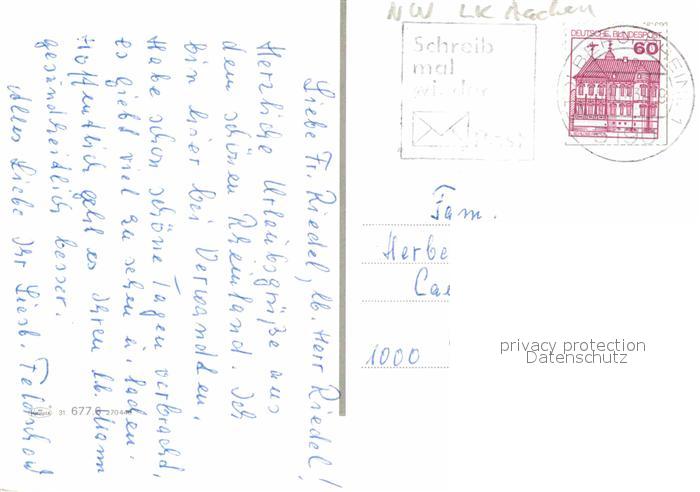 NW LK Aachen
Schreib
mal
wieder
Post
DEUTSCHE BUNDESPOST
60
Liebe Fr. Riedel, lb. Herr Riedel!
Herzliche Urlaubsgrüße aus
dem schönen Rheinland. Ich
bin hier bei Verwandten.
Habe schon schöne Tagen verbracht,
es giebt viel zu sehen u. lachen.
Hoffentlich geht es Ihren lb. Mann
gesundheitlich besser.
Alles Liebe Ihr Liesb.
Fam.
Herbe
Ca
1000
privacy protection
Datenschutz
31 677.6